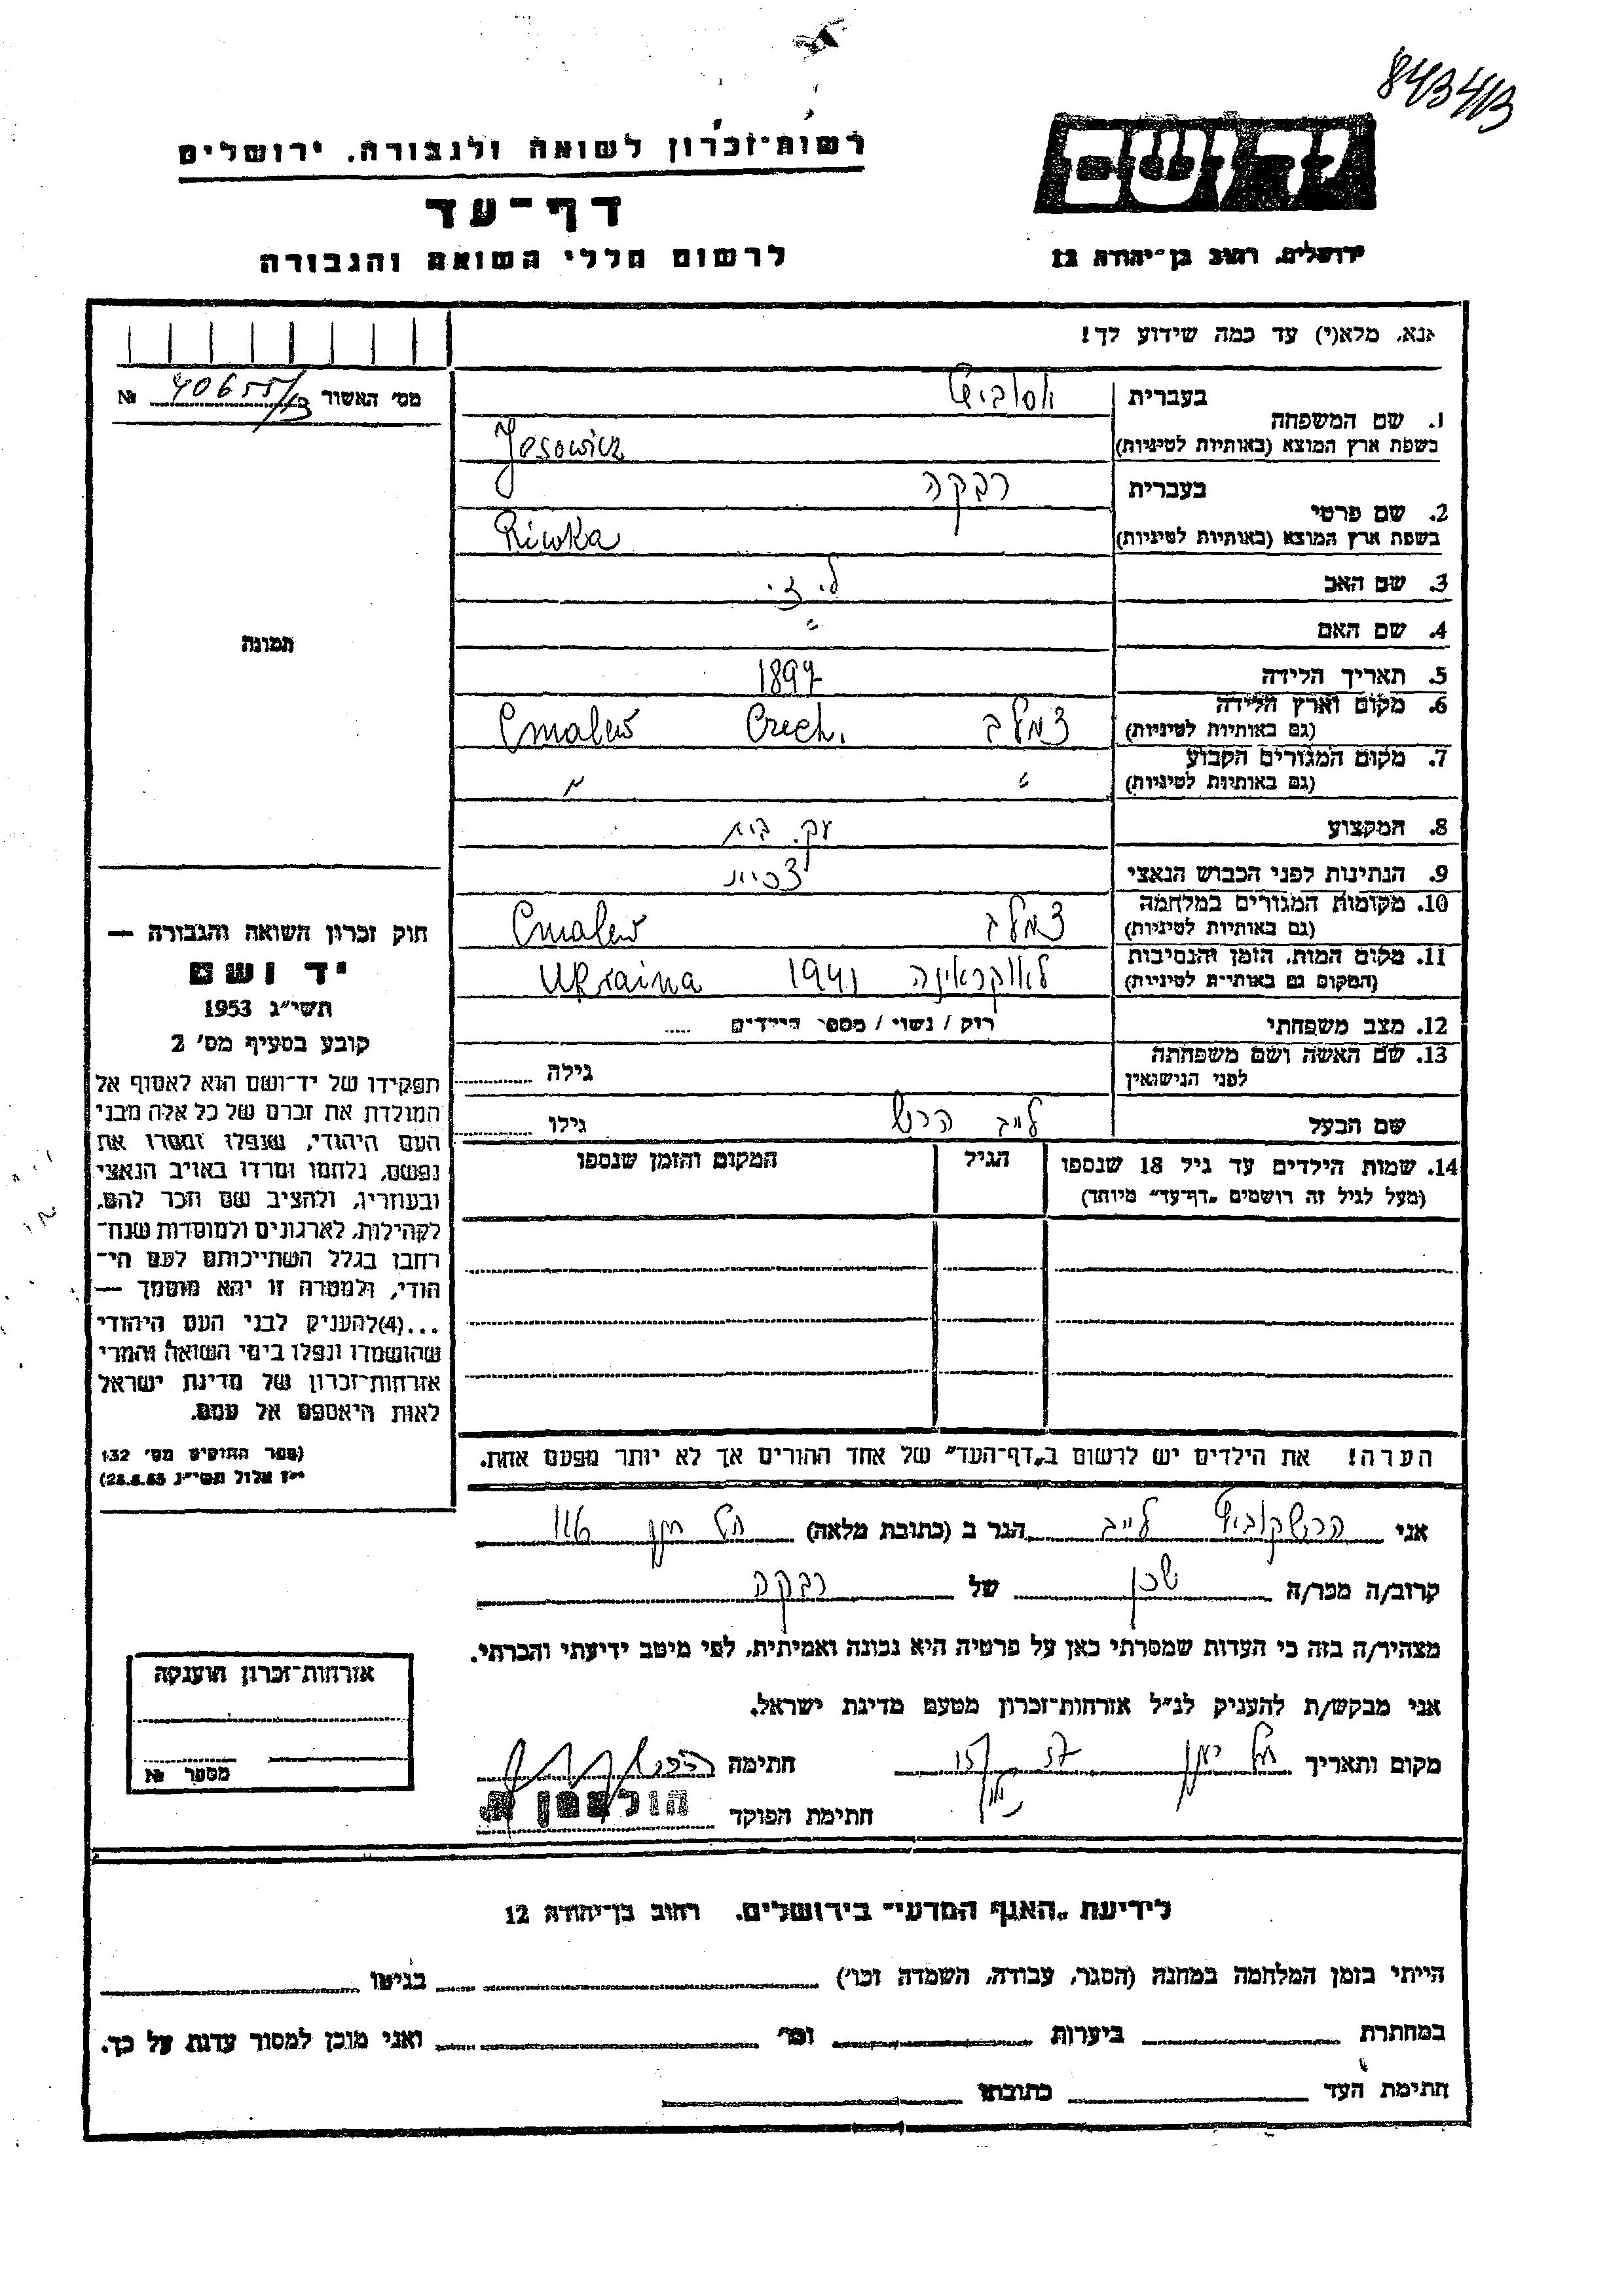 843413
יד ושם
ירושלים, רחוב בן־יהודה 12
רשות־זכרון לשואה ולגבורה, ירושלים
דף־עד
לרשום חללי השואה והגבורה
אנא, מלא(י) עד כמה שידוע לך!
מס׳ האשור 40655/13 №
תמונה
1. שם המשפחה
בעברית
בשפת ארץ המוצא (באותיות לטיניות) Josowicz
2. שם פרטי
בעברית רבקה
בשפת ארץ המוצא (באותיות לטיניות) Riwka
3. שם האב
4. שם האם "
5. תאריך הלידה 1897
6. מקום וארץ הלידה (גם באותיות לטיניות) צמלב Czech. Cmalew
7. מקום המגורים הקבוע (גם באותיות לטיניות) " "
8. המקצוע עק. בית
9. הנתינות לפני הכבוש הנאצי צכית
10. מקומות המגורים במלחמה (גם באותיות לטיניות) צמלב Cmalew
11. מקום המות, הזמן והנסיבות (המקום גם באותיות לטיניות) לאוקראינה 1941 Ukraina
12. מצב משפחתי רוק / נשוי / מספר הילדים .....
13. שם האשה ושם משפחתה לפני הנישואין גילה
שם הבעל לייב הרש גילו
14. שמות הילדים עד גיל 18 שנספו (מעל לגיל זה רושמים "דף־עד" מיוחד) הגיל המקום והזמן שנספו
הערה! את הילדים יש לרשום ב"דף־העד" של אחד ההורים אך לא יותר מפעם אחת.
חוק זכרון השואה והגבורה —
יד ושם
תשי"ג 1953
קובע בסעיף מס׳ 2
תפקידו של יד־ושם הוא לאסוף אל
המולדת את זכרם של כל אלה מבני
העם היהודי, שנפלו ומסרו את
נפשם, נלחמו ומרדו באויב הנאצי
ובעוזריו, ולהציב שם וזכר להם,
לקהילות, לארגונים ולמוסדות שנח־
רבו בגלל השתייכותם לעם הי־
הודי, ולמטרה זו יהא מוסמך —
...(4) להעניק לבני העם היהודי
שהושמדו ונפלו בימי השואה והמרי
אזרחות־זכרון של מדינת ישראל
לאות היאספם אל עמם.
(ספר החוקים מס׳ 132
י"ז אלול תשי"ג 28.8.53)
אני הרשקוביץ לייב הגר ב (כתובת מלאה)
קרוב/ה מכר/ה שכן של רבקה
מצהיר/ה בזה כי העדות שמסרתי כאן על פרטיה היא נכונה ואמיתית, לפי מיטב ידיעתי והכרתי.
אני מבקש/ת להעניק לנ"ל אזרחות־זכרון מטעם מדינת ישראל.
מקום ותאריך חתימה
חתימת הפוקד
אזרחות־זכרון הוענקה
מספר №
לידיעת "האגף המדעי" בירושלים, רחוב בן־יהודה 12
הייתי בזמן המלחמה במחנה (הסגר, עבודה, השמדה וכו׳) בגיטו
במחתרת ביערות וכו׳ ואני מוכן למסור עדות על כך.
חתימת העד כתובתו